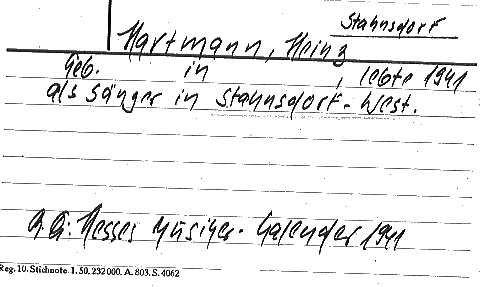 Stahnsdorf
Hartmann, Heinz
Geb. in , lebte 1941
als Sänger in Stahnsdorf-West.
Hesses Musiker-Kalender 1941
Reg. 10. Stichnote 1. 50. 232000. A. 803. S. 4062